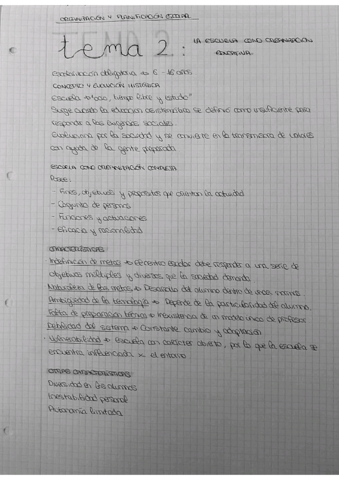 ORGANIZACIÓN Y PLANIFICACIÓN ESCOLAR
tema 2: LA ESCUELA COMO ORGANIZACIÓN
EDUCATIVA.
Escolarización obligatoria → 6 - 16 años
CONCEPTO Y EVOLUCIÓN HISTÓRICA
Escuela → "ocio, tiempo libre y estudio"
Surge cuando la educación asistemática se definió como insuficiente para
responder a las exigencias sociales.
Evoluciona por la sociedad y se convierte en la transmisora de valores
con ayuda de la gente preparada.
ESCUELA COMO ORGANIZACIÓN COMPLEJA
- Fines, objetivos y propósitos que orientan la actividad
- Conjunto de personas
- Funciones y actuaciones
- Eficacia y racionalidad
CARACTERÍSTICAS
Indefinición de metas → El centro escolar debe responder a una serie de
objetivos múltiples y diversos que la sociedad demanda
Naturaleza de las metas → Desarrollo del alumno dentro de unos
Ambigüedad de la tecnología → Depende de la particularidad del alumno.
Falta de preparación técnica → Inexistencia de un modelo único de profesor
Debilidad del sistema → Constante cambio y adaptación
Vulnerabilidad → Escuela con carácter abierto, por lo que la escuela se
encuentra influenciada x el entorno
OTRAS CARACTERÍSTICAS:
Diversidad en los alumnos
Inestabilidad personal
Autonomía limitada